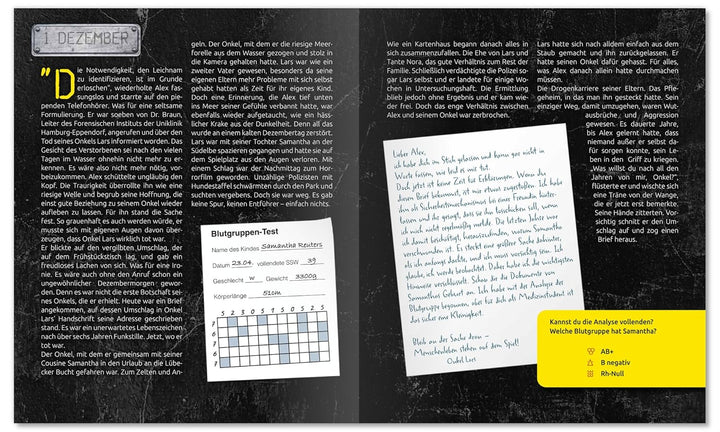 1 DEZEMBER
"Die Notwendigkeit, den Leichnam
zu identifizieren, ist im Grunde
erloschen", wiederholte Alex fas-
sungslos und starrte auf den pie-
penden Telefonhörer. Was für eine seltsame
Formulierung. Er war soeben von Dr. Braun,
Leiter des Forensischen Instituts der Uniklinik
Hamburg-Eppendorf, angerufen und über den
Tod seines Onkels Lars informiert worden. Das
Gesicht des Verstorbenen sei nach den vielen
Tagen im Wasser ohnehin nicht mehr zu er-
kennen. Es wäre also nicht mehr nötig, vor-
beizukommen, Alex schüttelte ungläubig den
Kopf. Die Traurigkeit überrollte ihn wie eine
riesige Welle und begrub seine Hoffnung, die
einst gute Beziehung zu seinem Onkel wieder
aufleben zu lassen. Für ihn stand die Sache
fest. So grauenhaft es auch werden würde, er
musste sich mit eigenen Augen davon über-
zeugen, dass Onkel Lars wirklich tot war.
Er blickte auf den vergilbten Umschlag, der
auf dem Frühstückstisch lag, und gab ein
freudloses Lachen von sich. Was für eine Iro-
nie. Es wäre auch ohne den Anruf schon ein
ungewöhnlicher Dezembermorgen gewor-
den. Denn es war nicht die erste Botschaft sei-
nes Onkels, die er erhielt. Heute war ein Brief
angekommen, auf dessen Umschlag in Onkel
Lars' Handschrift seine Adresse geschrieben
stand. Es war ein unerwartetes Lebenszeichen
nach über sechs Jahren Funkstille. Jetzt, wo er
tot war.
Der Onkel, mit dem er gemeinsam mit seiner
Cousine Samantha in den Urlaub an die Lübe-
cker Bucht gefahren war. Zum Zelten und An-
geln. Der Onkel, mit dem er die riesige Meer-
forelle aus dem Wasser gezogen und stolz in
die Kamera gehalten hatte. Lars war wie ein
zweiter Vater gewesen, besonders da seine
eigenen Eltern mehr Probleme mit sich selbst
gehabt hatten als Zeit für ihr eigenes Kind.
Doch eine Erinnerung, die Alex tief unten
ins Meer seiner Gefühle verbannt hatte, war
ebenfalls wieder aufgetaucht, wie ein häss-
licher Krake aus der Dunkelheit. Denn all das
wurde an einem kalten Dezembertag zerstört.
Lars war mit seiner Tochter Samantha an der
Südelbe spazieren gegangen und hatte sie auf
dem Spielplatz aus den Augen verloren. Mit
einem Schlag war der Nachmittag zum Hor-
rorfilm geworden. Unzählige Polizisten mit
Hundestaffel schwärmten durch den Park und
suchten vergebens. Doch sie war weg. Es gab
keine Spur, keinen Entführer – einfach nichts.
Blutgruppen-Test
Name des Kindes Samantha Reuters
Datum 23.04. vollendete SSW 39
Geschlecht w Gewicht 3300g
Körperlänge 51cm
Wie ein Kartenhaus begann danach alles in
sich zusammenzufallen. Die Ehe von Lars und
Tante Nora, das gute Verhältnis zum Rest der
Familie. Schließlich verdächtigte die Polizei so-
gar Lars selbst und er landete für einige Wo-
chen in Untersuchungshaft. Die Ermittlung
blieb jedoch ohne Ergebnis und er kam wie-
der frei. Doch das enge Verhältnis zwischen
Alex und seinem Onkel war zerbrochen.
Lieber Alex,
ich habe dich im Stich gelassen und kann gar nicht in
Worte fassen, wie leid es mir tut.
Doch jetzt ist keine Zeit für Erklärungen. Wenn du
diesen Brief bekommst, ist mir etwas zugestoßen. Ich habe
ihn als Sicherheitsmechanismus bei einem Freund hinter-
lassen und ihn gesagt, dass er ihn losschicken soll, wenn
ich mich nicht regelmäßig melde. Die letzten Jahre war
ich damit beschäftigt, herauszufinden, warum Samantha
verschwunden ist. Es steckt eine größere Sache dahinter,
als ich anfangs dachte, und ich muss vorsichtig sein. Ich
glaube, ich werde beobachtet. Daher habe ich die wichtigsten
Hinweise verschlüsselt. Schau dir die Dokumente von
Samanthas Geburt an. Ich habe mit der Analyse der
Blutgruppe begonnen, aber für dich als Medizinstudent ist
das sicher eine Kleinigkeit.
Bleib an der Sache dran –
Menschenleben stehen auf dem Spiel!
Onkel Lars
Lars hatte sich nach alldem einfach aus dem
Staub gemacht und ihn zurückgelassen. Er
hatte seinen Onkel dafür gehasst. Für alles,
was Alex danach allein hatte durchmachen
müssen.
Die Drogenkarriere seiner Eltern. Das Pfle-
geheim, in das man ihn gesteckt hatte. Sein
einziger Weg, damit umzugehen, waren Wut-
ausbrüche und Aggression
gewesen. Es dauerte Jahre,
bis Alex gelernt hatte, dass
niemand außer er selbst da-
für sorgen konnte, sein Le-
ben in den Griff zu kriegen.
„Was willst du nach all den
Jahren von mir, Onkel",
flüsterte er und wischte sich
eine Träne von der Wange,
die er jetzt erst bemerkte.
Seine Hände zitterten. Vor-
sichtig schnitt er den Um-
schlag auf und zog einen
Brief heraus.
Kannst du die Analyse vollenden?
Welche Blutgruppe hat Samantha?
AB+
B negativ
Rh-Null